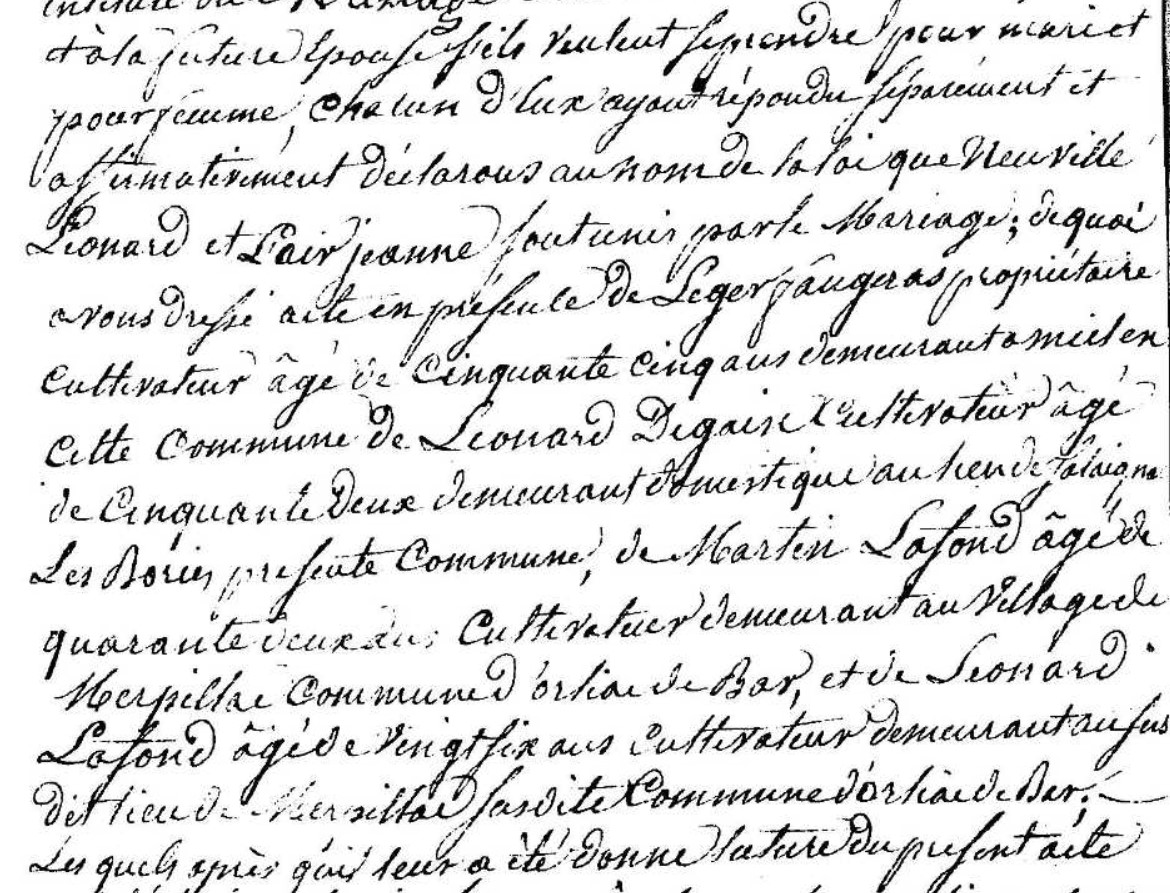 et à la future Epouse s'ils veulent se prendre pour mari et
pour femme, chacun d'Eux ayant répondu séparément et
affirmativement déclarons au nom de la loi que Neuville
Léonard et Lair jeanne sont unis par le Mariage; de quoi
avons dressé acte en présence de Leger faugeras propriétaire
Cultivateur âgé de Cinquante Cinq ans demeurant a miel en
Cette Commune de Leonard Degain Cultivateur âgé
de Cinquante Deux demeurant domestique au lieu de
Les Bories presente Commune, de Martin Lafond âgé de
quarante deux ans Cultivateur demeurant au Village de
Merpillac Commune d'orliac de Bar, et de Leonard
Lafond âgé de Vingt six ans Cultivateur demeurant au sus
dit lieu de Merpillac susdite Commune d'orliac de Bar.
Les quels après qu'il leur a été donné lecture du present acte